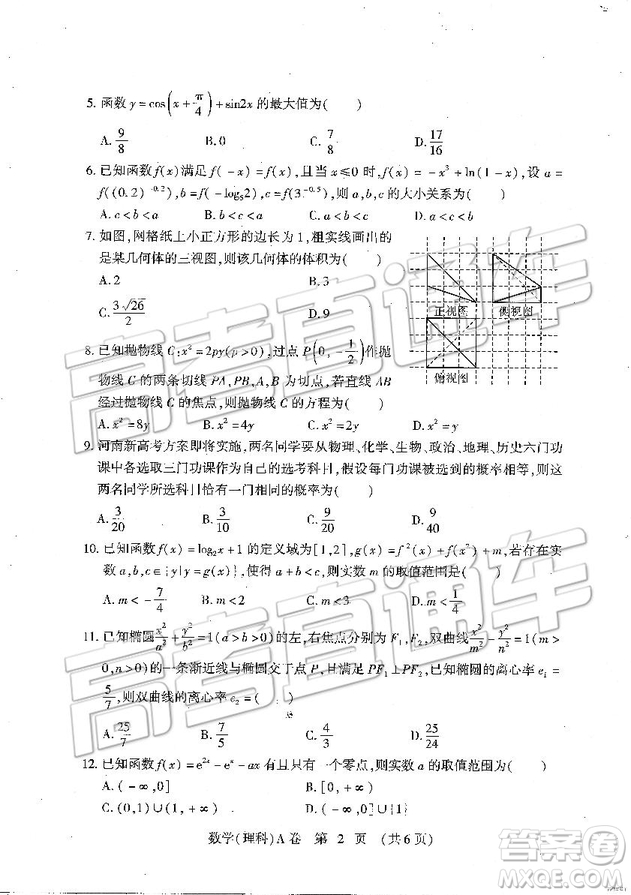 5. 函数 y = cos(x + π/4) + sin2x 的最大值为(    )
A. 9/8    B. 0    C. 7/8    D. 17/16
6. 已知函数 f(x) 满足 f(-x) = f(x), 且当 x ≤ 0 时, f(x) = -x³ + ln(1-x), 设 a =
f((0.2)^(-0.2)), b = f(-log₅2), c = f(3^(-0.5)), 则 a, b, c 的大小关系为(    )
A. c < b < a    B. b < c < a    C. a < c < b    D. a < b < c
7. 如图, 网格纸上小正方形的边长为 1, 粗实线画出的
是某几何体的三视图, 则该几何体的体积为(    )
A. 2    B. 3
C. 3√26/2    D. 9
正视图    侧视图
俯视图
8. 已知抛物线 C: x² = 2py(p > 0), 过点 P(0, -1/2) 作抛
物线 C 的两条切线 PA, PB, A, B 为切点, 若直线 AB
经过抛物线 C 的焦点, 则抛物线 C 的方程为(    )
A. x² = 8y    B. x² = 4y    C. x² = 2y    D. x² = y
9. 河南新高考方案即将实施, 两名同学要从物理、化学、生物、政治、地理、历史六门功
课中各选取三门功课作为自己的选考科目, 假设每门功课被选到的概率相等, 则这
两名同学所选科目恰有一门相同的概率为(    )
A. 3/20    B. 3/10    C. 9/20    D. 9/40
10. 已知函数 f(x) = log₂x + 1 的定义域为[1,2], g(x) = f²(x) + f(x²) + m, 若存在实
数 a, b, c ∈ {y|y = g(x)}, 使得 a + b < c, 则实数 m 的取值范围是(    )
A. m < -7/4    B. m < 2    C. m < 3    D. m < 1/4
11. 已知椭圆 x²/a² + y²/b² = 1(a > b > 0) 的左, 右焦点分别为 F₁, F₂, 双曲线 x²/m² - y²/n² = 1(m >
0, n > 0) 的一条渐近线与椭圆交于点 P, 且满足 PF₁ ⊥ PF₂, 已知椭圆的离心率 e₁ =
5/7, 则双曲线的离心率 e₂ = (    )
A. 25/7    B. 7/5    C. 4/3    D. 25/24
12. 已知函数 f(x) = e^(2x) - e^x - ax 有且只有一个零点, 则实数 a 的取值范围为(    )
A. (-∞, 0]    B. [0, +∞)
C. (0,1)∪(1, +∞)    D. (-∞, 0]∪{1}
数学(理科)A卷  第 2 页  (共6页)
高考直通车